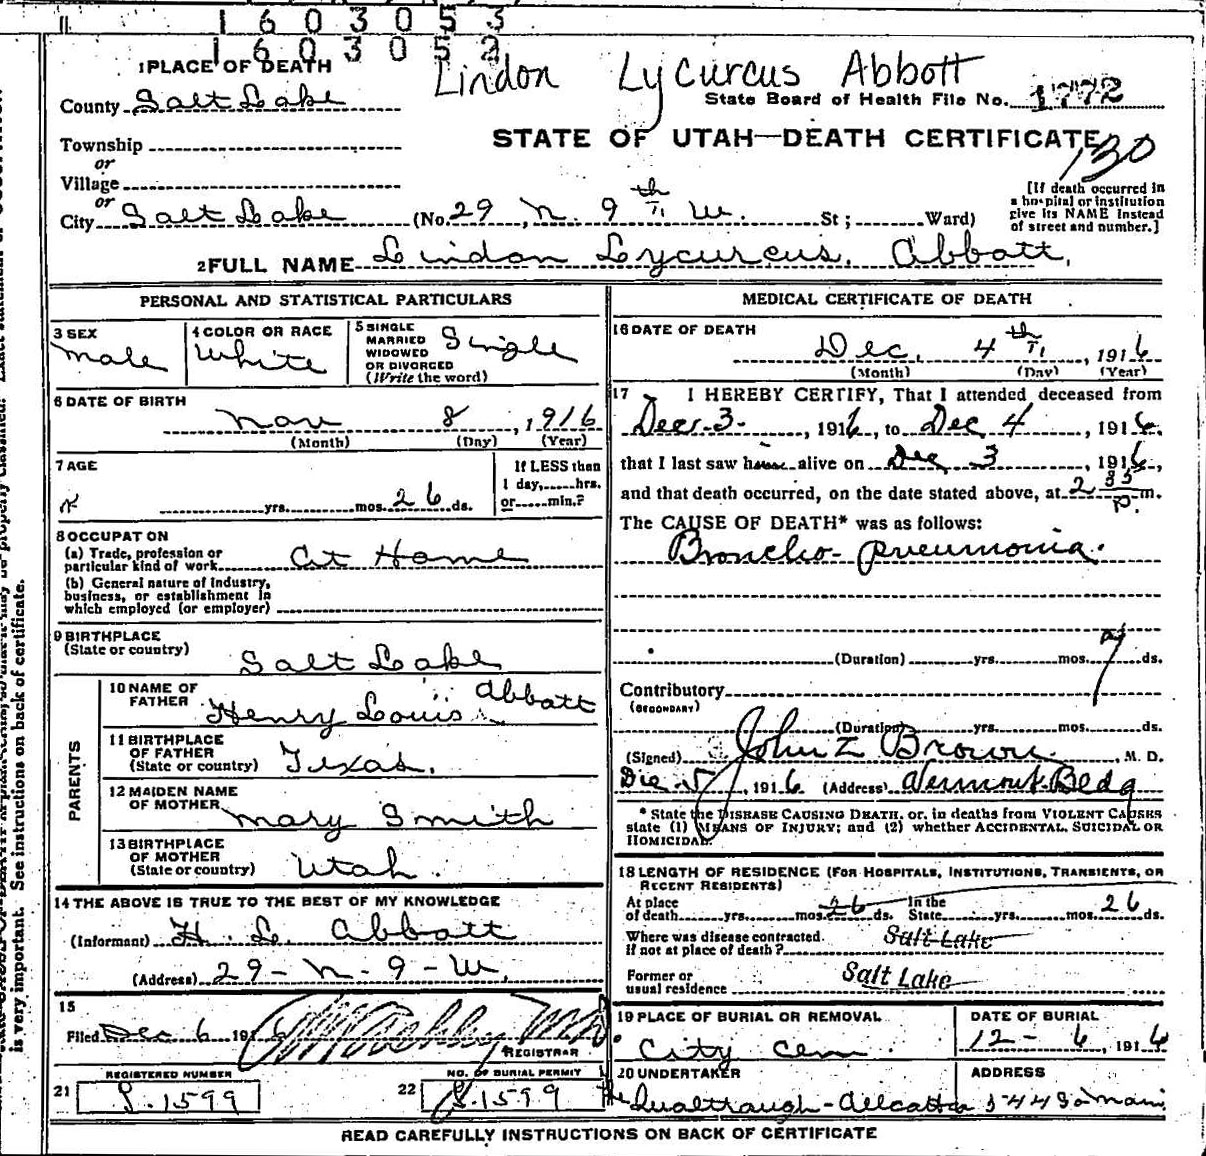 1 6 0 3 0 5 3
1 6 0 3 0 5 2
1 PLACE OF DEATH
Lindon Lycurcus Abbott
County Salt Lake
State Board of Health File No. 1772
Township
STATE OF UTAH—DEATH CERTIFICATE
130
or
Village
or
City Salt Lake (No. 29 N. 9th W. St; Ward)
[If death occurred in
a hospital or institution
give its NAME instead
of street and number.]
2 FULL NAME Lindon Lycurcus. Abbott.
PERSONAL AND STATISTICAL PARTICULARS
3 SEX
Male
4 COLOR OR RACE
White
5 SINGLE
MARRIED
WIDOWED
OR DIVORCED
(Write the word)
Single
6 DATE OF BIRTH
Nov 8, 1916
(Month) (Day) (Year)
7 AGE
yrs. mos. 26 ds.
If LESS than
1 day, hrs.
or min.?
8 OCCUPATION
(a) Trade, profession or
particular kind of work At Home
(b) General nature of industry,
business, or establishment in
which employed (or employer)
9 BIRTHPLACE
(State or country)
Salt Lake
PARENTS
10 NAME OF
FATHER
Henry Louis Abbott
11 BIRTHPLACE
OF FATHER
(State or country) Texas.
12 MAIDEN NAME
OF MOTHER Mary Smith
13 BIRTHPLACE
OF MOTHER
(State or country) Utah.
14 THE ABOVE IS TRUE TO THE BEST OF MY KNOWLEDGE
(Informant) H. L. Abbott
(Address) 29-N-9-W.
15
Filed Dec 6 1916
REGISTRAR
REGISTERED NUMBER
21 S.1599
NO. OF BURIAL PERMIT
22 S.1599
MEDICAL CERTIFICATE OF DEATH
16 DATE OF DEATH
Dec. 4th, 1916
(Month) (Day) (Year)
17 I HEREBY CERTIFY, That I attended deceased from
Dec. 3., 1916, to Dec 4, 1916,
that I last saw him alive on Dec 3, 1916,
and that death occurred, on the date stated above, at 2 35 P. m.
The CAUSE OF DEATH* was as follows:
Broncho-pneumonia.
(Duration) yrs. mos. 7 ds.
Contributory
(SECONDARY)
(Duration) yrs. mos. ds.
(Signed) John Z Brown, M. D.
Dec 5, 1916 (Address) Vermont Bldg
* State the DISEASE CAUSING DEATH, or, in deaths from VIOLENT CAUSES
state (1) MEANS OF INJURY; and (2) whether ACCIDENTAL, SUICIDAL OR
HOMICIDAL.
18 LENGTH OF RESIDENCE (FOR HOSPITALS, INSTITUTIONS, TRANSIENTS, OR
RECENT RESIDENTS)
At place
of death yrs. mos. 26 ds. In the
State yrs. mos. 26 ds.
Where was disease contracted.
If not at place of death? Salt Lake
Former or
usual residence Salt Lake
19 PLACE OF BURIAL OR REMOVAL
City Cem.
DATE OF BURIAL
12-6, 1916
20 UNDERTAKER
ADDRESS
READ CAREFULLY INSTRUCTIONS ON BACK OF CERTIFICATE
is very important. See instructions on back of certificate.